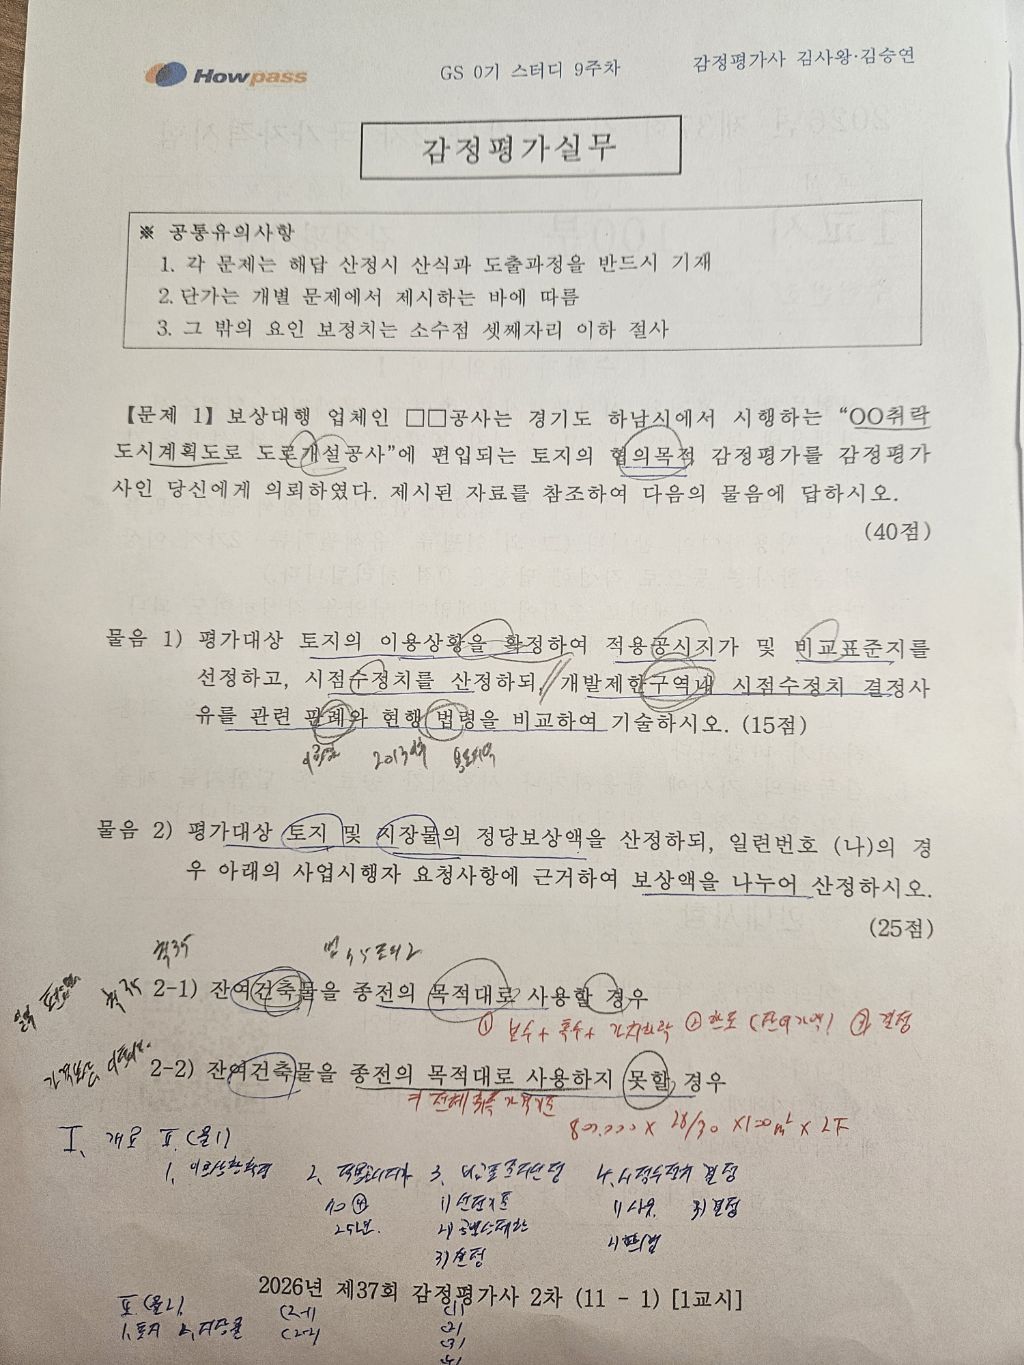 Howpass
GS 0기 스터디 9주차
감정평가사 김사왕·김승연
감정평가실무
※ 공통유의사항
1. 각 문제는 해답 산정시 산식과 도출과정을 반드시 기재
2. 단가는 개별 문제에서 제시하는 바에 따름
3. 그 밖의 요인 보정치는 소수점 셋째자리 이하 절사
【문제 1】 보상대행 업체인 □□공사는 경기도 하남시에서 시행하는 “OO취락
도시계획도로 도로개설공사”에 편입되는 토지의 협의목적 감정평가를 감정평가
사인 당신에게 의뢰하였다. 제시된 자료를 참조하여 다음의 물음에 답하시오.
(40점)
물음 1) 평가대상 토지의 이용상황을 확정하여 적용공시지가 및 비교표준지를
선정하고, 시점수정치를 산정하되, 개발제한구역내 시점수정치 결정사
유를 관련 판례와 현행 법령을 비교하여 기술하시오. (15점)
2013
물음 2) 평가대상 토지 및 지장물의 정당보상액을 산정하되, 일련번호 (나)의 경
우 아래의 사업시행자 요청사항에 근거하여 보상액을 나누어 산정하시오.
(25점)
칙35
법 75조의2
칙35
2-1) 잔여건축물을 종전의 목적대로 사용할 경우
① 보수 + 특수 + 가치하락 ② 한도 (잔여가액) ③ 결정
2-2) 잔여건축물을 종전의 목적대로 사용하지 못할 경우
28/30 × 100㎡ ×
I, 개요 표 (물1)
1, 이용상황확정 2, 적용공시지가 3, 비교표준지선정 4, 시점수정치 결정
70 ④ 1) 선정기준 1) 3) 결정
25년. 2)
3) 선정
2026년 제37회 감정평가사 2차 (11 - 1) [1교시]
표 (물2)
1, 토지 2, 지장물 (2-1)
(2-2)